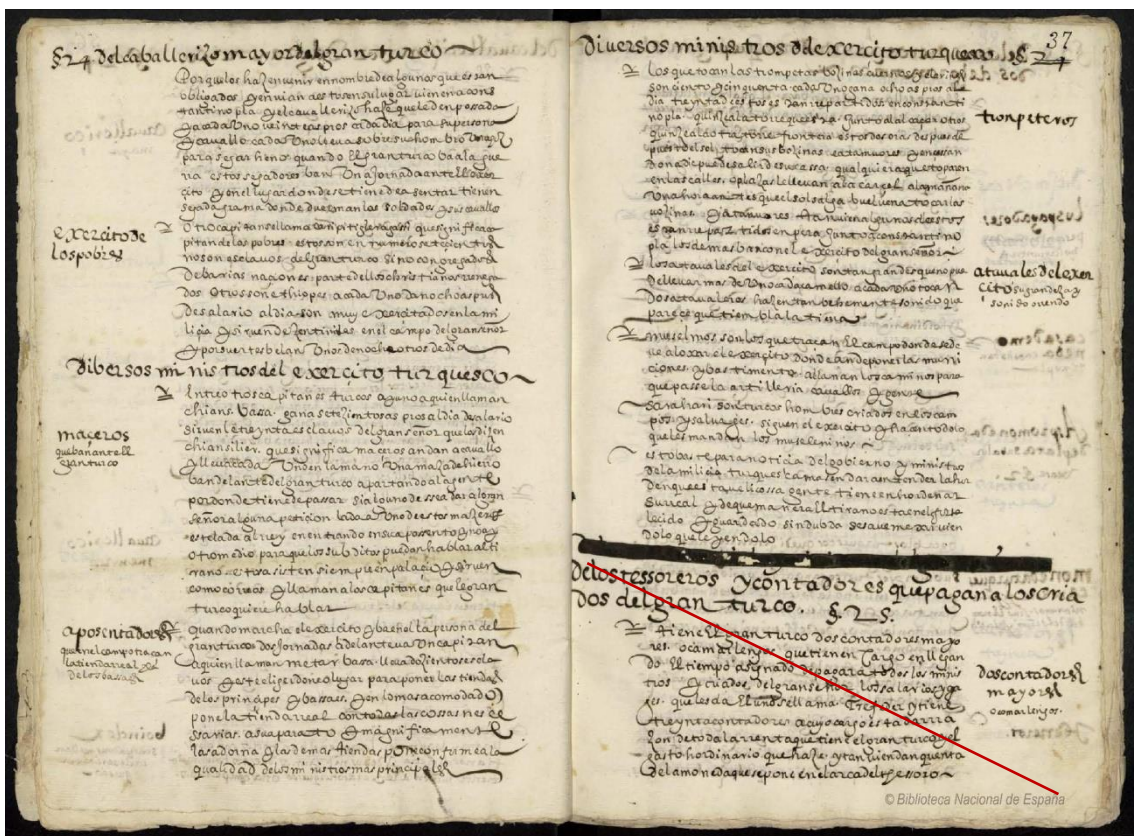 §24 del caballerizo mayor del gran turco
Porque los hazen venir en nombre de algunas que estan
obligados y envian destos en su lugar vienen a cons
tantinopla y el cavallerizo haze que le den posada
y a cada uno veinte aspros cada dia para su persona
y cavallo cada uno lleva sobre su hombro
para segar heno quando El gran turco va a la gue
rra estos segadores van Una jornada ante El exer
cito y en el lugar donde se tiene de asentar tienen
segada grama donde duerman los soldados y sus cavallos
exercito de
los pobres
Otro capitan se llama que significa ca
pitan de los pobres estos son en numero
no son esclavos del gran turco sino congregados
de barias naciones parte dellos christianos renega
dos otros son ethiopes a cada Uno dan ocho aspros
de salario al dia son muy exercitados en la mi
licia y sirven de zentinelas en el campo del gran señor
y por suertes belan Unos de noche otros de dia
Dibersos ministros del exercito turquesco
maceros
que ban ante el
gran turco
Entre otros capitanes turcos ay uno a quien llaman
chians basa gana setezientos aspros al dia de salario
sirvenle treynta esclavos del gran señor que los dizen
chiansilier que significa maceros andan a cavallo
y lleva cada Uno en la mano Una maza de hierro
ban delante del gran turco apartando a la gente
por donde tiene de passar si alguno dessea dar al gran
señor alguna peticion la da a Uno de estos maceros
este la da al rey en entrando en su aposento y no ay
otro medio para que los subditos puedan hablar al ti
rano estos asisten siempre en palacio y sirven
como correos y llaman a los capitanes que el gran
turco quiere hablar
aposentadores
que en el campo traçan
la tienda real y
de los basas
quando marcha el exercito y ba en el la persona del
gran turco dos jornadas adelante va Un capitan
a quien llaman metar basa lleva dozientos escla
vos y este elige donde lugar para poner las tiendas
de los principes y bassaes y en lo mas acomodado
pone la tienda real con todas las cossas nece
sarias a su aparato y magnificamente
las adorna y las demas tiendas pone conforme a la
qualidad de los ministros mas principales
Diversos ministros del exercito turquesco §24
37
trompeteros
los que tocan las trompetas bozinas
son ciento y cinquenta cada Uno gana ocho aspros al
dia treynta destos estan repartidos en constanti
nopla quinze a la torre que esta junto al alcaçar otros
quinze a la otra torre frontera estos dos oras despues de
puesto el sol tocan sus bozinas y atanbores y en
donadie puede salir de su cassa qualquiera que toparen
en las calles o plazas le llevan a la carcel a la mañana
Una hora antes que el sol salga buelven a tocar las
bozinas y atanbores tanvien algunos destos
estan repartidos en pera junto a constantino
pla los demas ban con el exercito del gran señor
atavales del exer
cito su grandeza y
sonido orrendo
los atavales del exercito son tan grandes que no pue
de llevar mas de Uno cada camello a cada Uno tocan
dos atavaleros hazen tan vehemente sonido que
parece que tiembla la tierra
muselmos son los que traçan El campo donde se de
ve aloxar el exercito donde an de poner las muni
ciones y bastimento allanan los caminos para
que passe la artilleria cavallos y gente
sarahari son turcos hombres criados en los cam
pos y salvajes siguen el exercito y hacen todo lo
que les mandan los muselminos
esto baste para noticia del govierno y ministros
de la milicia turquesca mas en dar a entender la
den que esta velicossa gente tiene en hordenar
su real y de que manera el tirano esta en el forta
lecido y guardado sin dubda se save mejor vien
dolo que leyendolo
De los tessoreros y contadores que pagan a los cria
dos del gran turco. §25.
dos contadores
mayores
o camarlengos.
tiene El gran turco dos contadores mayo
res o camarlengos que tienen cargo en llegan
do El tiempo asignado de pagar a todos los minis
tros y criados del gran señor los salarios y ga
ges que les da El uno se llama y tiene
treynta contadores a cuyo cargo esta dar ra
zon de toda la renta que tiene el gran turco y el
gasto hordinario que haze y tanvien dan quenta
de la moneda que se pone en el arca del thessoro
© Biblioteca Nacional de España